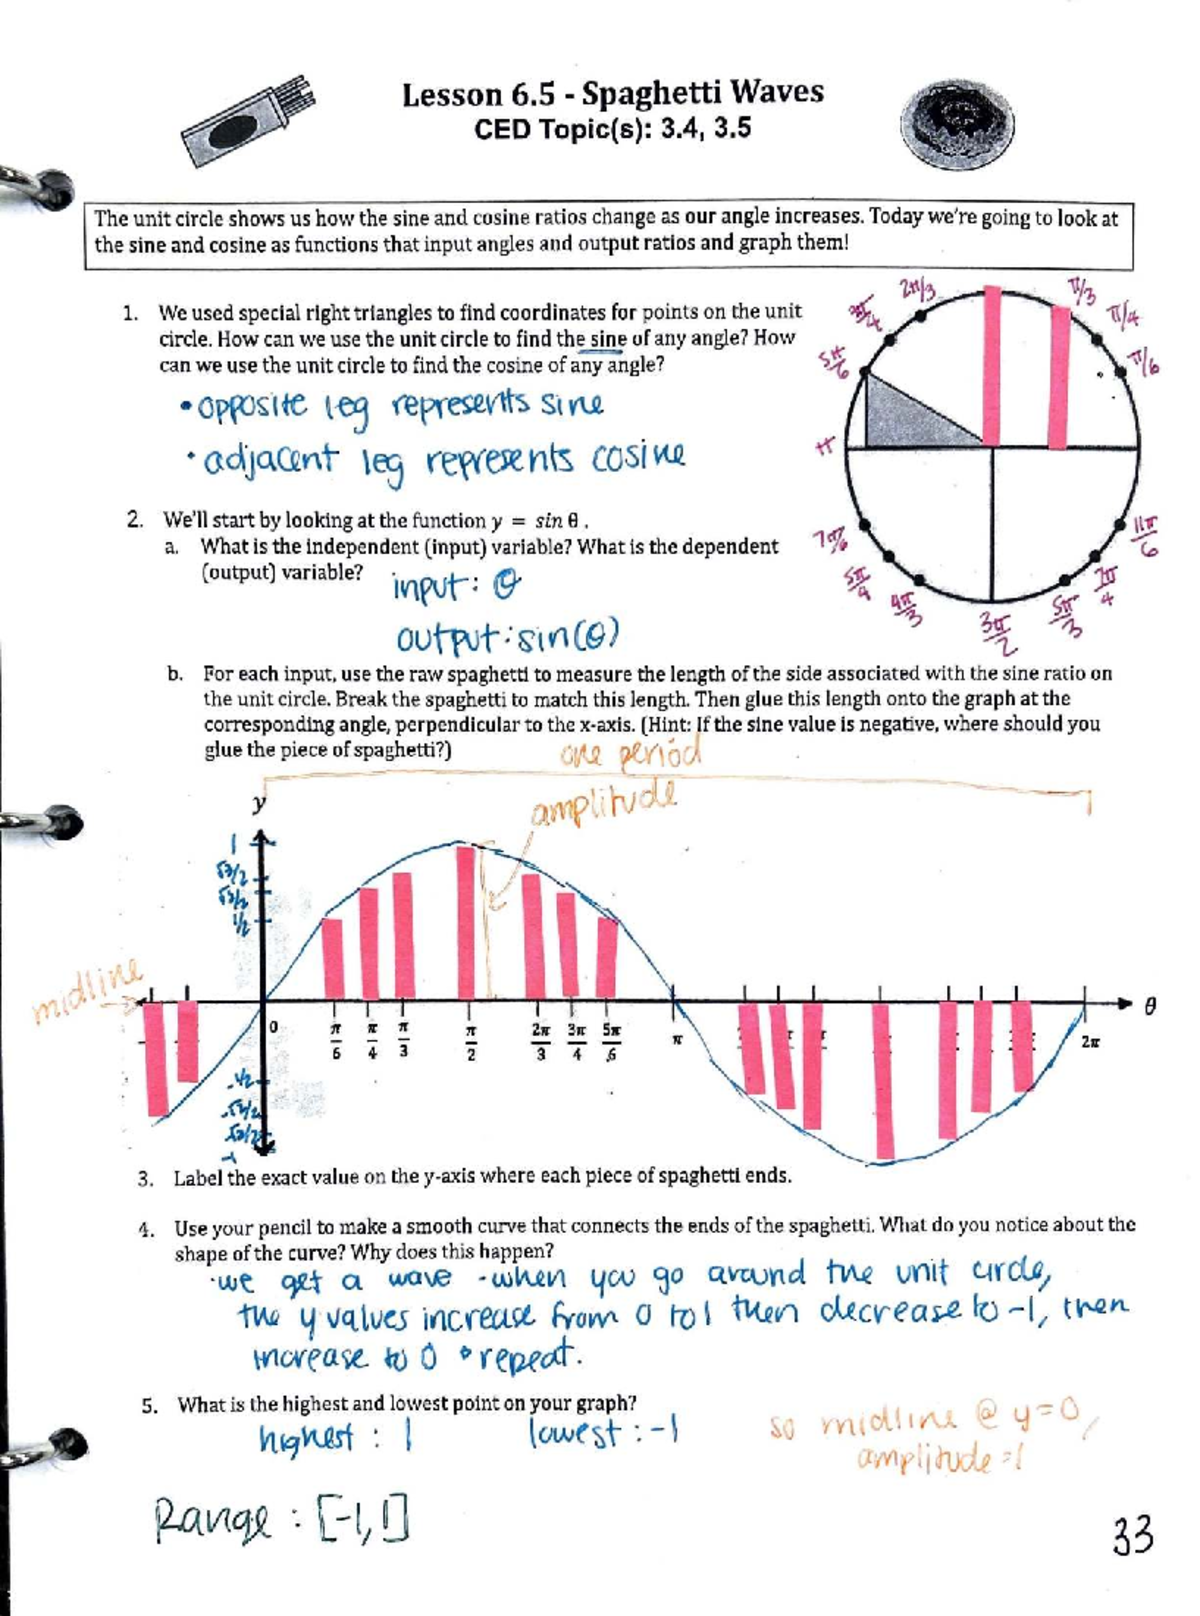 Lesson 6.5 - Spaghetti Waves
CED Topic(s): 3.4, 3.5
The unit circle shows us how the sine and cosine ratios change as our angle increases. Today we're going to look at
the sine and cosine as functions that input angles and output ratios and graph them!
1. We used special right triangles to find coordinates for points on the unit
circle. How can we use the unit circle to find the sine of any angle? How
can we use the unit circle to find the cosine of any angle?
• opposite leg represents sine
• adjacent leg represents cosine
2π/3
π/3
3π/4
π/4
5π/6
π/6
π
7π/6
11π/6
5π/4
7π/4
4π/3
5π/3
3π/2
2. We'll start by looking at the function y = sin θ.
a. What is the independent (input) variable? What is the dependent
(output) variable?
input: θ
output: sin(θ)
b. For each input, use the raw spaghetti to measure the length of the side associated with the sine ratio on
the unit circle. Break the spaghetti to match this length. Then glue this length onto the graph at the
corresponding angle, perpendicular to the x-axis. (Hint: If the sine value is negative, where should you
glue the piece of spaghetti?)
one period
amplitude
y
1
√3/2
1/2
midline
θ
0 π/6 π/4 π/3 π/2 2π/3 3π/4 5π/6 π 2π
-1/2
-1
3. Label the exact value on the y-axis where each piece of spaghetti ends.
4. Use your pencil to make a smooth curve that connects the ends of the spaghetti. What do you notice about the
shape of the curve? Why does this happen?
·we get a wave -when you go around the unit circle,
the y values increase from 0 to 1 then decrease to -1, then
increase to 0 • repeat.
5. What is the highest and lowest point on your graph?
highest : 1 lowest : -1
so midline @ y=0,
amplitude=1
Range : [-1,1]
33